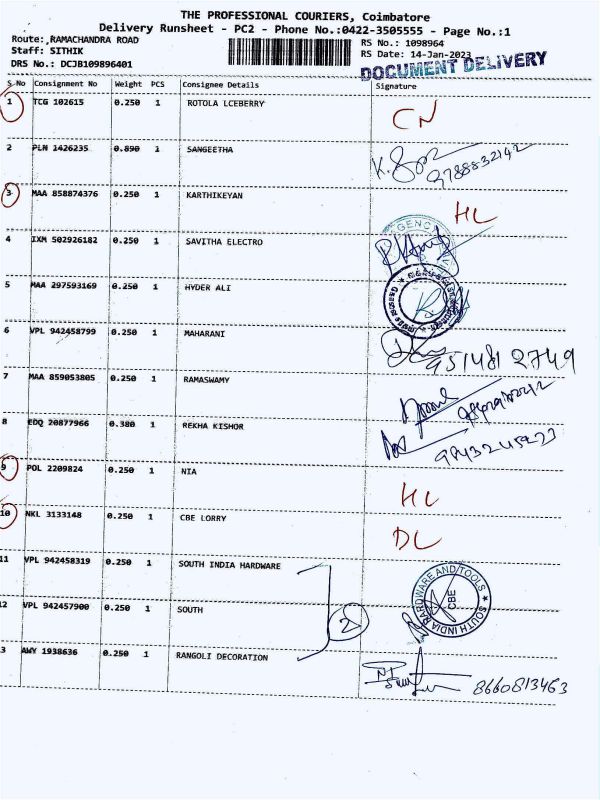 THE PROFESSIONAL COURIERS, Coimbatore
Delivery Runsheet - PC2 - Phone No.:0422-3505555 - Page No.:1
Route: RAMACHANDRA ROAD
Staff: SITHIK
DRS No.: DCJB109896401
RS No.: 1098964
RS Date: 14-Jan-2023
DOCUMENT DELIVERY
S No Consignment No Weight PCS Consignee Details Signature
1 TCG 102615 0.250 1 ROTOLA LCEBERRY CN
2 PLN 1426235 0.890 1 SANGEETHA 9788832142
3 MAA 858874376 0.250 1 KARTHIKEYAN HL
4 IXM 502926182 0.250 1 SAVITHA ELECTRO
5 MAA 297593169 0.250 1 HYDER ALI
6 VPL 942458799 0.250 1 MAHARANI 9514812749
7 MAA 859053805 0.250 1 RAMASWAMY
8 EDQ 20877966 0.380 1 REKHA KISHOR
9 POL 2209824 0.250 1 NIA HL
10 NKL 3133148 0.250 1 CBE LORRY DL
11 VPL 942458319 0.250 1 SOUTH INDIA HARDWARE
12 VPL 942457900 0.250 1 SOUTH 2
SOUTH INDIA HARDWARE AND TOOLS CBE
3 AWY 1938636 0.250 1 RANGOLI DECORATION 8660813463